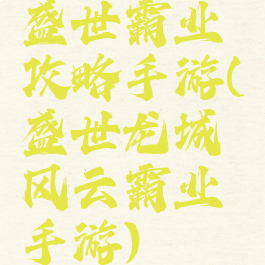 盛世霸业
攻略手游(
盛世龙城
风云霸业
手游)